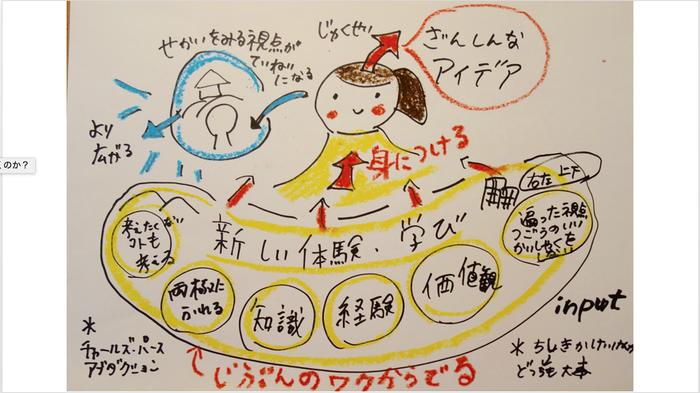 せかいをみる視点が
ていねい
になる
じゅくせい
ざんしんな
アイデア
より
広がる
のか？
身につける
右左 上下
考えたくない
コトも
考える
新しい体験、学び
偏った視点
つごうのいい
かいしゃくを
しない
両極に
ふれる
知識
経験
価値観
input
*
チャールズ・パース
アブダクション
じぶんのワクからでる